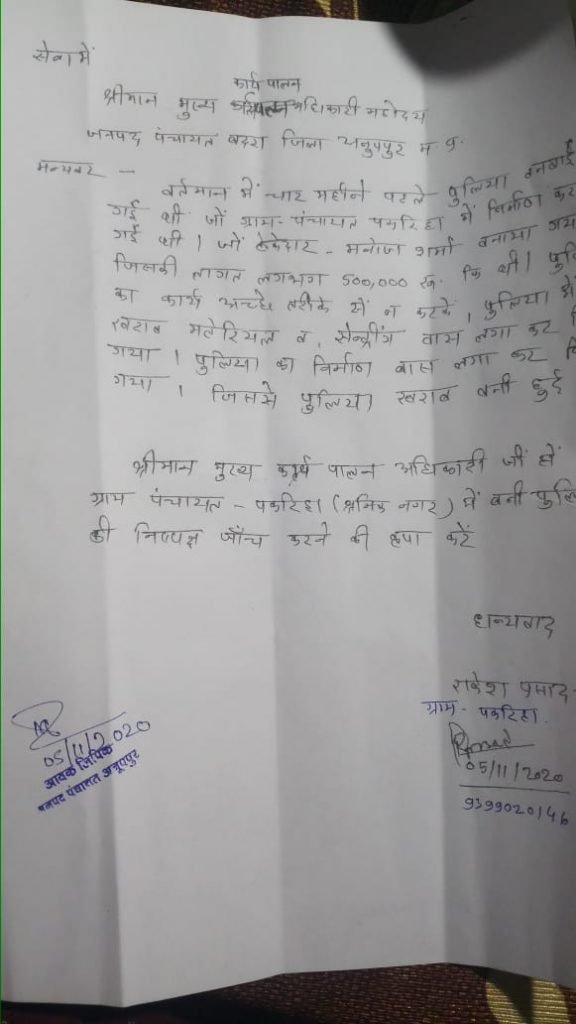 सेवा में
कार्य पालन
श्रीमान मुख्य अधिकारी महोदय
जनपद पंचायत बदरा जिला अनुपपुर म.प्र.
मान्यवर -
वर्तमान में चार महीने पहले पुलिया बनवाई
गई थी जों ग्राम-पंचायत पकरिहा में निर्माण कर
गई थी। जों ठेकेदार - मनोज शर्मा बनाया गया
जिसकी लागत लगभग 500,000 रू. कि थी। पु
का कार्य अच्छे तरीके से न करके, पुलिया में
खराब मटेरियल व, सेन्ट्रींग बास लगा कर
गया। पुलिया का निर्माण बास लगा कर
गया। जिससे पुलिया खराब बनी हुई
श्रीमान मुख्य कार्य पालन अधिकारी जी से
ग्राम पंचायत - पकरिहा (श्रमिक नगर) में बनी पुलि
की निष्पक्ष जाँच करने की कृपा करें
धन्यबाद
राकेश प्रसाद
ग्राम - पकरिहा.
05/11/2020
9399020146
05/11/2020
आवक लिपिक
जनपद पंचायत अनूपपुर